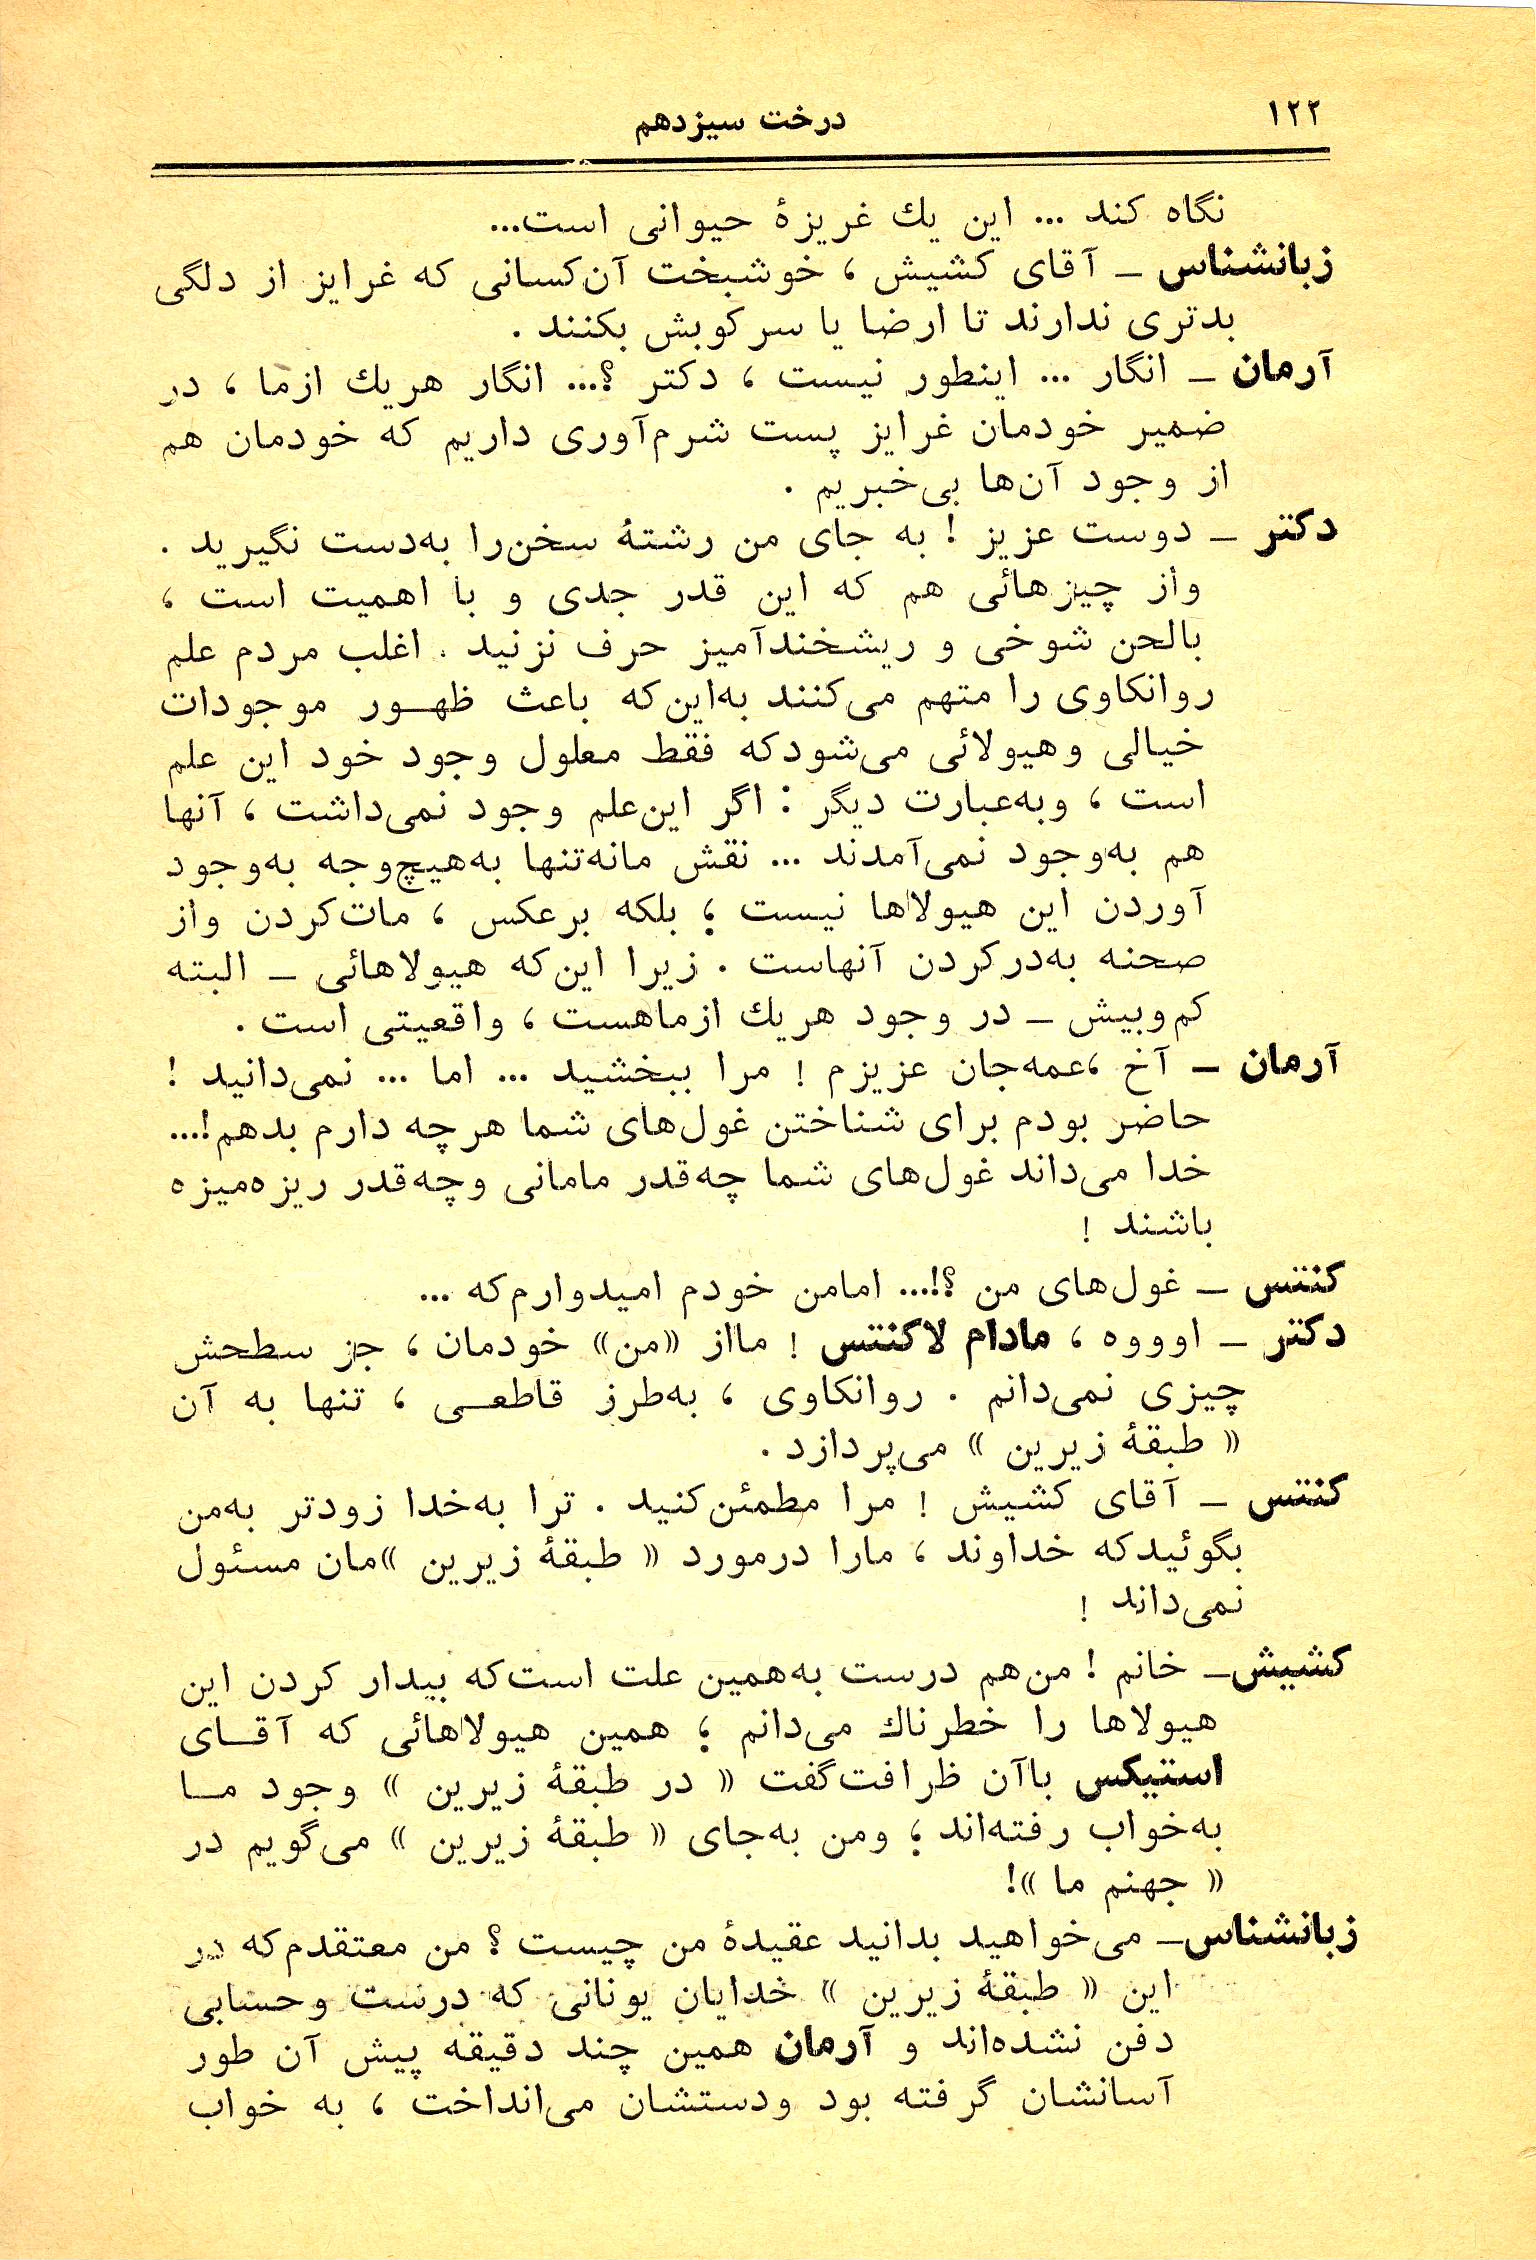 ۱۲۲
درخت سیزدهم
نگاه کند ... این یك غریزهٔ حیوانی است...
زبانشناس ـ آقای کشیش ، خوشبخت آن‌کسانی که غرایز از دلگی
بدتری ندارند تا ارضا یا سرکوبش بکنند .
آرمان ـ انگار ... اینطور نیست ، دکتر ؟... انگار هریك ازما ، در
ضمیر خودمان غرایز پست شرم‌آوری داریم که خودمان هم
از وجود آن‌ها بی‌خبریم .
دکتر ـ دوست عزیز ! به جای من رشتهٔ سخن‌را به‌دست نگیرید .
واز چیزهائی هم که این قدر جدی و با اهمیت است ،
بالحن شوخی و ریشخندآمیز حرف نزنید . اغلب مردم علم
روانکاوی را متهم می‌کنند به‌این‌که باعث ظهــور موجودات
خیالی وهیولائی می‌شودکه فقط معلول وجود خود این علم
است ، وبه‌عبارت دیگر : اگر این‌علم وجود نمی‌داشت ، آنها
هم به‌وجود نمی‌آمدند ... نقش مانه‌تنها به‌هیچ‌وجه به‌وجود
آوردن این هیولاها نیست ؛ بلکه برعکس ، مات‌کردن واز
صحنه به‌درکردن آنهاست . زیرا این‌که هیولاهائی ـ البته
کم‌وبیش ـ در وجود هریك ازماهست ، واقعیتی است .
آرمان ـ آخ ،عمه‌جان عزیزم ! مرا ببخشید ... اما ... نمی‌دانید !
حاضر بودم برای شناختن غول‌های شما هرچه دارم بدهم!...
خدا می‌داند غول‌های شما چه‌قدر مامانی وچه‌قدر ریزه‌میزه
باشند !
کنتس ـ غول‌های من ؟!... امامن خودم امیدوارم‌که ...
دکتر ـ اوووه ، مادام لاکنتس ! مااز «من» خودمان ، جز سطحش
چیزی نمی‌دانم . روانکاوی ، به‌طرز قاطعــی ، تنها به آن
« طبقهٔ زیرین » می‌پردازد .
کنتس ـ آقای کشیش ! مرا مطمئن‌کنید . ترا به‌خدا زودتر به‌من
بگوئیدکه خداوند ، مارا درمورد « طبقهٔ زیرین »مان مسئول
نمی‌داند !
کشیش‌ـ خانم ! من‌هم درست به‌همین علت است‌که بیدار کردن این
هیولاها را خطرناك می‌دانم ؛ همین هیولاهائی که آقــای
استیکس باآن ظرافت‌گفت « در طبقهٔ زیرین » وجود مــا
به‌خواب رفته‌اند ؛ ومن به‌جای « طبقهٔ زیرین » می‌گویم در
« جهنم ما »!
زبانشناس‌ـ می‌خواهید بدانید عقیدهٔ من چیست ؟ من معتقدم‌که در
این « طبقهٔ زیرین » خدایان یونانی که درست وحسابی
دفن نشده‌اند و آرمان همین چند دقیقه پیش آن طور
آسانشان گرفته بود ودستشان می‌انداخت ، به خواب